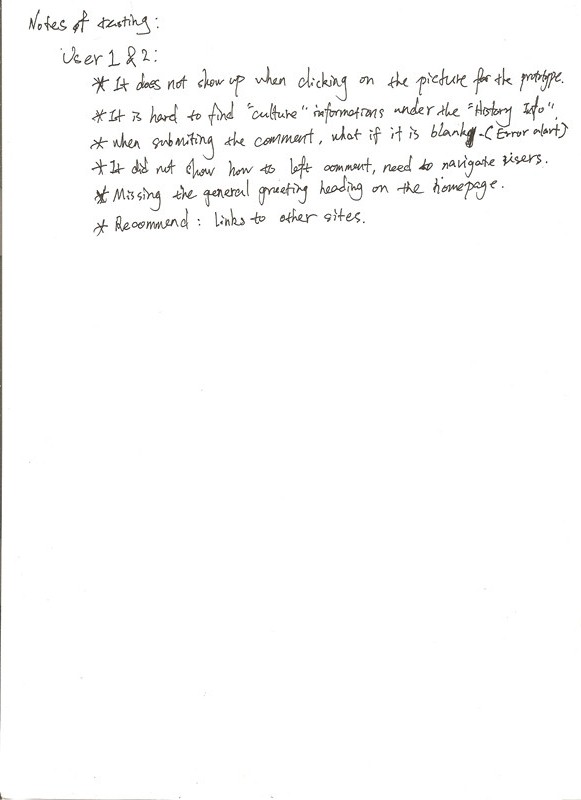 Notes of testing:
User 1 & 2:
* It does not show up when clicking on the picture for the prototype.
* It is hard to find "culture" informations under the "History Info".
* when submiting the comment, what if it is blank - (Error alart)
* It did not show how to left comment, need to navigate users.
* Missing the general greeting heading on the homepage.
* Recommend: links to other sites.